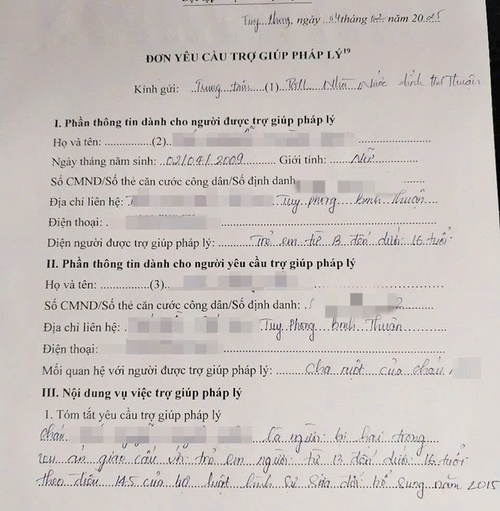 Tuy Phong, ngày 04 tháng năm 2025
ĐƠN YÊU CẦU TRỢ GIÚP PHÁP LÝ¹⁹
Kính gửi: Trung tâm (1) Nhà Nước tỉnh Thuận
I. Phần thông tin dành cho người được trợ giúp pháp lý
Họ và tên: (2)
Ngày tháng năm sinh: 02/04/2009 Giới tính: Nữ
Số CMND/Số thẻ căn cước công dân/Số định danh
Địa chỉ liên hệ: Tuy Phong Bình Thuận
Điện thoại:
Diện người được trợ giúp pháp lý: Trẻ em từ 13 đến dưới 16 tuổi
II. Phần thông tin dành cho người yêu cầu trợ giúp pháp lý
Họ và tên: (3)
Số CMND/Số thẻ căn cước công dân/Số định danh: 2
Địa chỉ liên hệ: Tuy Phong Bình Thuận
Điện thoại:
Mối quan hệ với người được trợ giúp pháp lý: Cha ruột của cháu
III. Nội dung vụ việc trợ giúp pháp lý
1. Tóm tắt yêu cầu trợ giúp pháp lý
Cháu là người bị hại trong
vụ án giao cấu với trẻ em người từ 13 đến dưới 16 tuổi
theo điều 145 của bộ luật hình sự sửa đổi bổ sung năm 2015